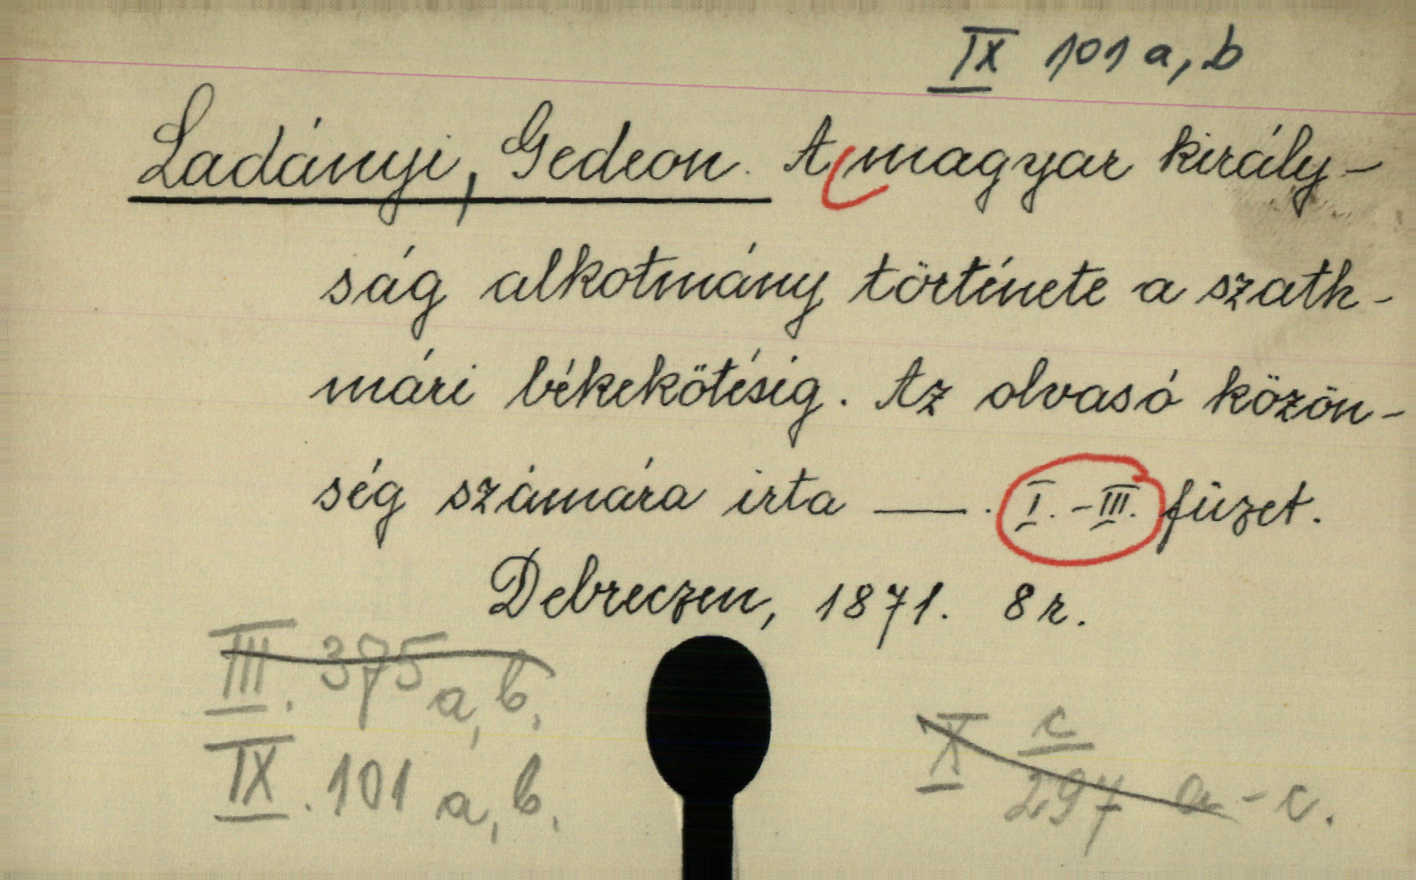 IX 101 a, b
Ladányi, Gedeon. A magyar király-
ság alkotmány története a szath-
mári békekötésig. Az olvasó közön-
ség számára irta —. I.-III. füzet.
Debreczen, 1871. 8r.
III. 375 a, b.
IX. 101 a, b.
X c/297 a-c.